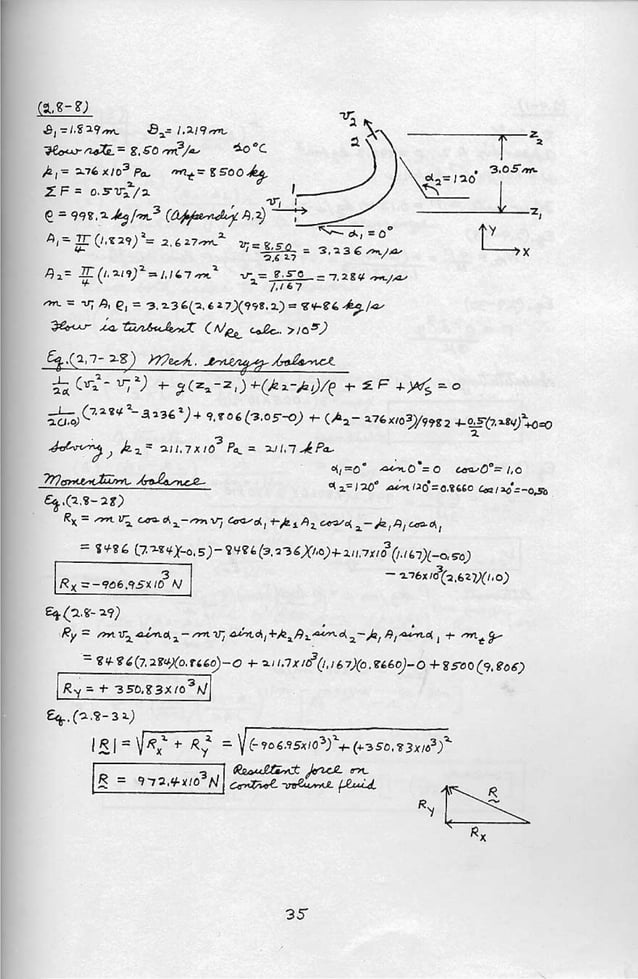 (2.8-8)
D₁ = 1.829 m D₂ = 1.219 m
Flow rate = 8.50 m³/s 20°C
p₁ = 276 x10³ Pa m_t = 8500 kg
ΣF = 0.5 v₂²/2
ρ = 998.2 kg/m³ (Appendix A.2)
v₂
2
1
v₁
α₁ = 0°
α₂ = 120°
z₂
3.05 m
z₁
Y
X
A₁ = π/4 (1.829)² = 2.627 m² v₁ = 8.50/2.627 = 3.236 m/s
A₂ = π/4 (1.219)² = 1.167 m² v₂ = 8.50/1.167 = 7.284 m/s
m = v₁ A₁ ρ₁ = 3.236(2.627)(998.2) = 8486 kg/s
Flow is turbulent (N_Re calc. > 10⁵)
Eq.(2.7-28) Mech. energy balance
1/2α (v₂² - v₁²) + g(z₂-z₁) + (p₂-p₁)/ρ + ΣF + W_s = 0
1/2(1.0) (7.284² - 3.236²) + 9.806(3.05-0) + (p₂ - 276x10³)/998.2 + 0.5(7.284)²/2 + 0 = 0
Solving, p₂ = 211.7 x 10³ Pa = 211.7 kPa
α₁ = 0° sin 0° = 0 cos 0° = 1.0
Momentum balance α₂ = 120° sin 120° = 0.8660 cos 120° = -0.50
Eq.(2.8-28)
R_x = m v₂ cos α₂ - m v₁ cos α₁ + p₂ A₂ cos α₂ - p₁ A₁ cos α₁
= 8486 (7.284)(-0.5) - 8486(3.236)(1.0) + 211.7x10³(1.167)(-0.50)
- 276x10³(2.627)(1.0)
R_x = -906.95x10³ N
Eq (2.8-29)
R_y = m v₂ sin α₂ - m v₁ sin α₁ + p₂ A₂ sin α₂ - p₁ A₁ sin α₁ + m_t g
= 8486(7.284)(0.8660) - 0 + 211.7x10³(1.167)(0.8660) - 0 + 8500(9.806)
R_y = + 350.83x10³ N
Eq.(2.8-32)
|R| = √(R_x² + R_y²) = √((-906.95x10³)² + (+350.83x10³)²)
R = 972.4x10³ N Resultant force on
control volume fluid
R_y
R
R_x
35